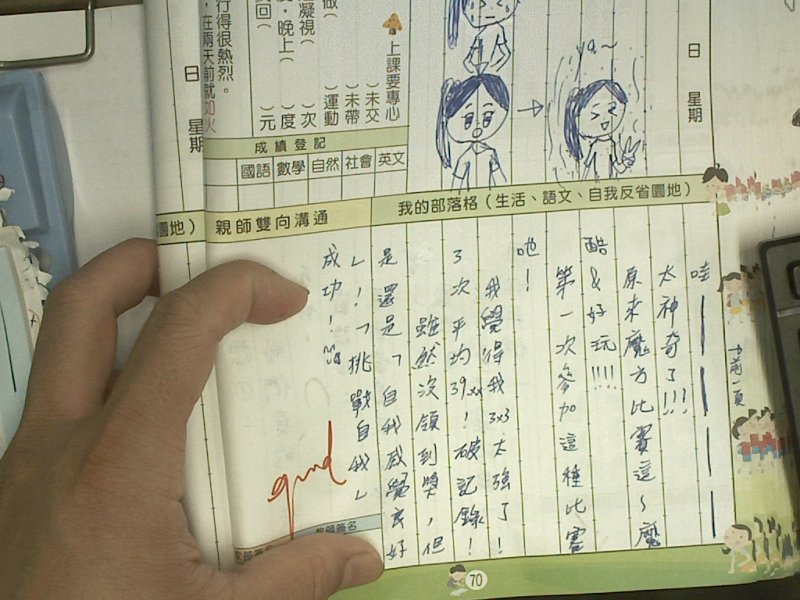 ya~
日 星期
上課要專心
我的部落格（生活、語文、自我反省園地）
哇————
太神奇了!!!
原來魔方比賽這~魔
酷&好玩!!!!
第一次參加這種比賽
吔！
我覺得我3x3太強了！
3次平均39.xx！破記錄！
雖然沒領到獎，但
是還是「自我感覺良好
」！「挑戰自我」
成功！
ㄅ前一頁
（ ）未交
（ ）未帶
（ ）運動
（ ）次
（ ）度
（ ）元
成績登記
國語 數學 自然 社會 英文
親師雙向溝通
good
行得很熱烈。
，在兩天前就如火
日 星期
園地）
70